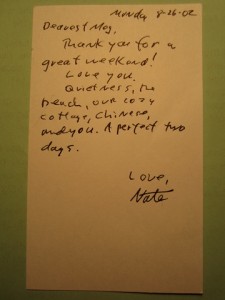 Monday 8-26-02
Dearest Meg,
Thank you for a
great weekend!
I love you.
Quietness, the
beach, our cozy
cottage, Chinese,
and you. A perfect two
days.
Love,
Nate